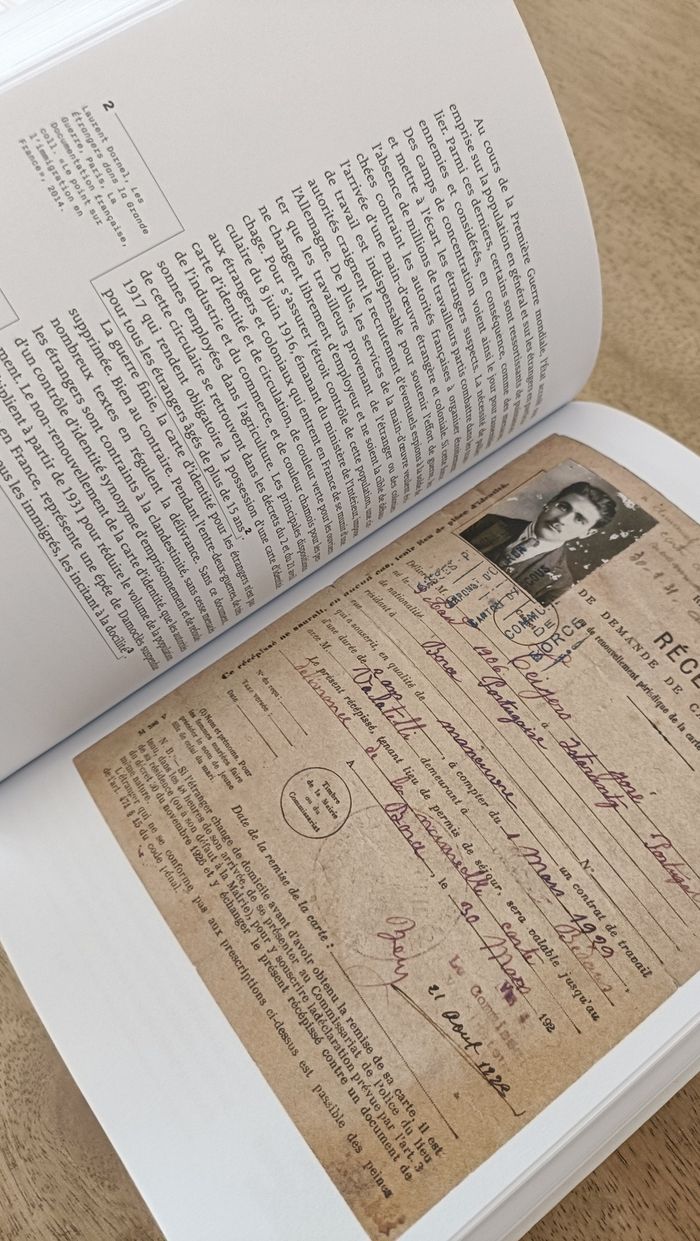 Au cours de la Première Guerre mondiale, l'État
emprise sur la population en général et sur les étrangers en
lier. Parmi ces derniers, certains sont ressortissants de
ennemies et considérés, en conséquence, comme des
Des camps de concentration voient ainsi le jour pour
et mettre à l'écart les étrangers suspects. La nécessité de
l'absence de millions de travailleurs partis combattre dans les
chées contraint les autorités françaises à organiser
l'arrivée d'une main-d'œuvre étrangère et coloniale. Si cette
de travail est indispensable pour soutenir l'effort de guerre, les
autorités craignent le recrutement d'éventuels espions à
l'Allemagne. De plus, les services de la main-d'œuvre veulent
ter que les travailleurs provenant de l'étranger ou des colonies
ne changent librement d'employeur et ne soient la cible de
chage. Pour s'assurer l'étroit contrôle de cette population, une
culaire du 8 juin 1916, émanant du ministère de l'Intérieur,
aux étrangers et coloniaux qui entrent en France de se munir d'une
carte d'identité et de circulation, de couleur verte pour les ouvriers
de l'industrie et du commerce, et de couleur chamois pour les per-
sonnes employées dans l'agriculture. Les principales dispositions
de cette circulaire se retrouvent dans les décrets du 2 et du 21 avril
1917 qui rendent obligatoire la possession d'une carte d'identité
pour tous les étrangers âgés de plus de 15 ans².
La guerre finie, la carte d'identité pour les étrangers n'est pas
supprimée. Bien au contraire. Pendant l'entre-deux-guerres, de très
nombreux textes en régulent la délivrance. Sans ce document,
les étrangers sont contraints à la clandestinité sans cesse menacés
d'un contrôle d'identité synonyme d'emprisonnement et de
ment. Le non-renouvellement de la carte d'identité que les autorités
plient à partir de 1931 pour réduire le volume de la population
en France, représente une épée de Damoclès suspendue
ous les immigrés, les incitant à la docilité³.
2
Laurent Dornel, Les
Étrangers dans la Grande
Guerre, Paris, La
Documentation française,
coll. «Le point sur
l'immigration en
France», 2014.
RÉCÉ
DE DEMANDE DE C
de renouvellement périodique de la carte
Ce récépissé ne saurait, en aucun cas, tenir lieu de pièce d'identité.
COMMU
DE
BORCE
Délivré à M.
né
né le 1906 à
de nationalité Portugaise
résidant à Borce
rue N°
qui a souscrit, en qualité de manœuvre un contrat de travail
d'une durée de , à compter du 1 Mars 1929
avec M. demeurant à Bedous
Le présent récépissé, tenant lieu de permis de séjour, sera valable jusqu'au
délivrance de la nouvelle carte
A Borce , le 30 Mars 192
21 Août 1929
N° du reçu :
Taxe versée :
Date :
(1) Nom et prénoms. Pour
les femmes mariées faire
précéder le nom de jeune
fille de celui du mari.
Timbre
de la Mairie
ou du
Commissariat
Date de la remise de la carte :
N. B. — Si l'étranger change de domicile avant d'avoir obtenu la remise de sa carte, il est
tenu, dans les 48 heures de son arrivée, de se présenter au Commissariat de Police du lieu
de sa résidence (ou à son défaut à la Mairie), pour y souscrire la déclaration prévue par l'art. 3
du décret du 30 novembre 1926 et y échanger le présent récépissé contre un document de
même nature.
L'étranger qui ne se conforme pas aux prescriptions ci-dessus est passible des peines
de l'art. 471 § 15 du code pénal.